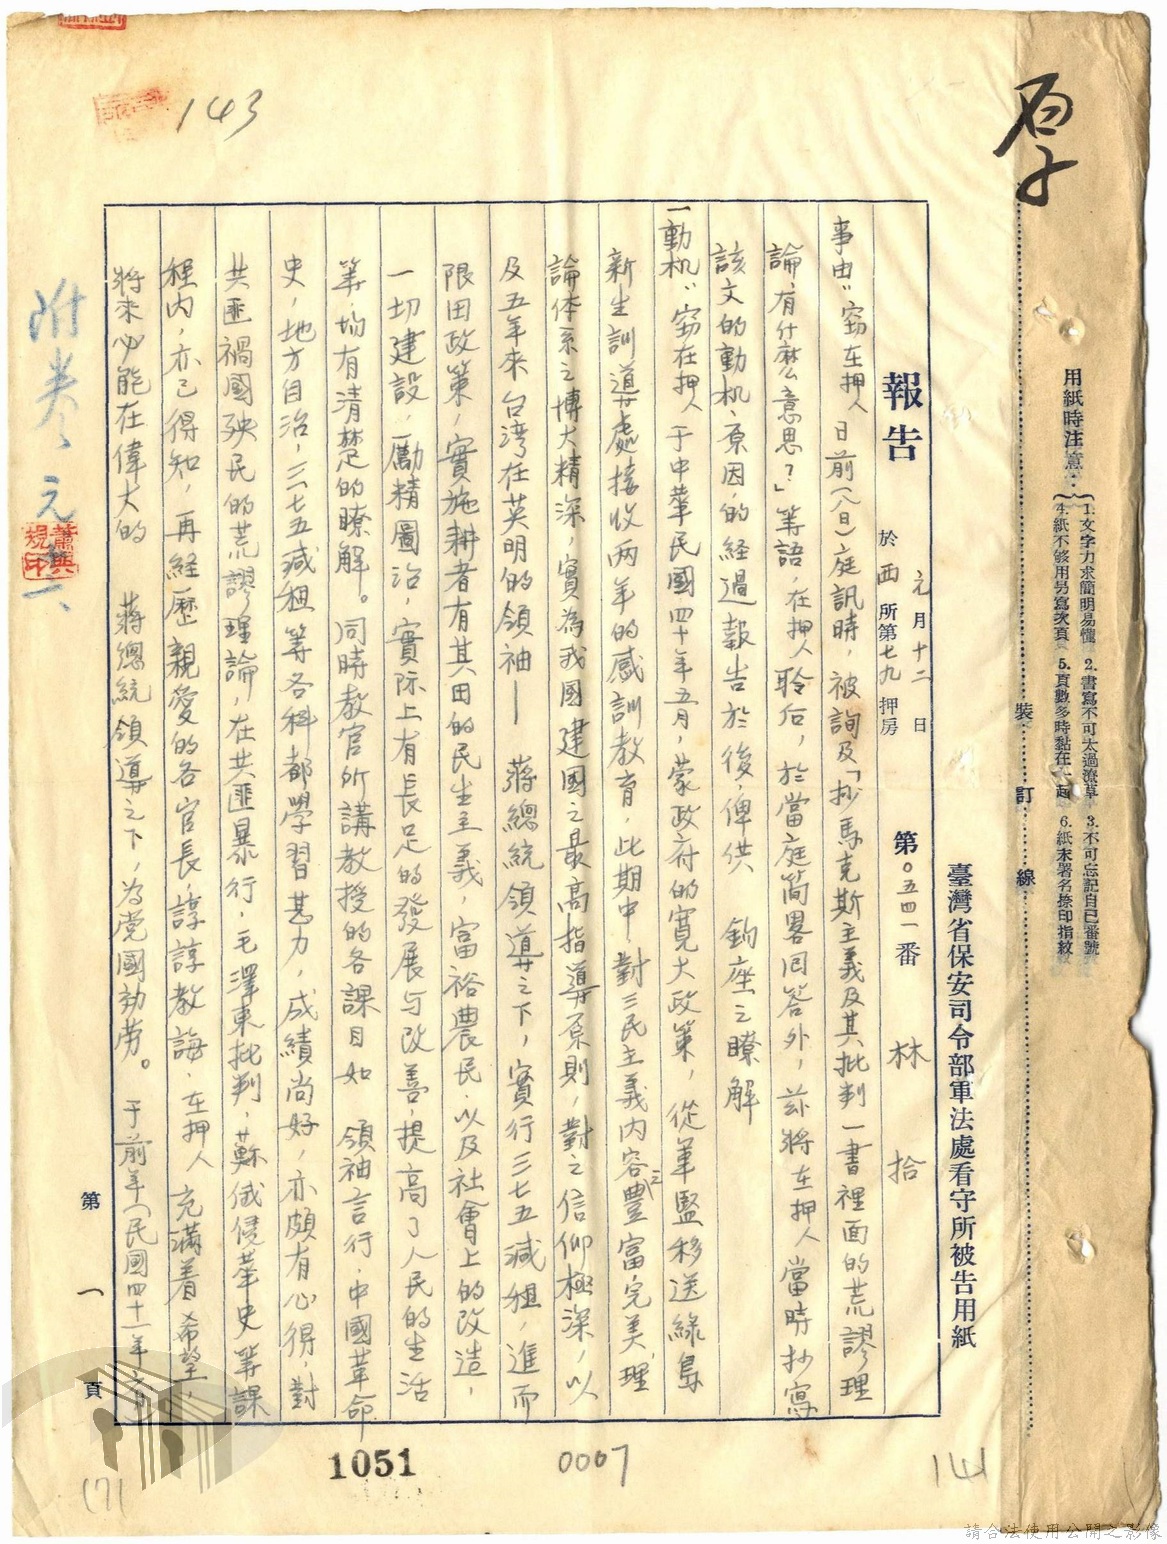 厚
用紙時注意：
1.文字力求簡明易懂 2.書寫不可太過潦草 3.不可忘記自己番號
4.紙不够用另寫次頁 5.頁數多時黏在一起 6.紙末署名捺印指紋
裝 訂 線
臺灣省保安司令部軍法處看守所被告用紙
報告 於 元月十二日 西所第七九押房 第〇五四一番 林 拾
事由：窃在押人日前(八日)庭訊時，被詢及「抄馬克斯主義及其批判一書裡面的荒謬理
論，有什麼意思？」等語，在押人聆后，於當庭簡畧回答外，茲將在押人當時抄寫
該文的動机、原因的經過報告於後，俾供 鈞座之瞭解
一動机：窃在押人于中華民國四十年五月，蒙政府的寬大政策，從軍監移送綠島
新生訓導處接收两年的感訓教育，此期中，對三民主義内容之豐富完美，理
論体系之博大精深，實為我國建國之最高指導原則，對之信仰極深，以
及五年來台湾在英明的領袖— 蔣總統領導之下，實行三七五減租，進而
限田政策，實施耕者有其田的民生主義，富裕農民，以及社會上的改造，
一切建設，勵精圖治，實际上有長足的發展与改善，提高了人民的生活
等，均有清楚的瞭解。同時教官所講教授的各課目如 領袖言行，中國革命
史，地方自治，三七五減租等各科都學習甚力，成績尚好，亦頗有心得，對
共匪禍國殃民的荒謬理論，在共匪暴行，毛澤東批判，蘇俄侵華史等課
程内，亦已得知，再経歷親愛的各官長，諄諄教誨，在押人充满着希望，
將来必能在偉大的 蔣總統領導之下，为党國効劳。 于前年(民國四十一年六月)
第一頁
附卷 元
143
1051
0007
141
171
請合法使用公開之影像